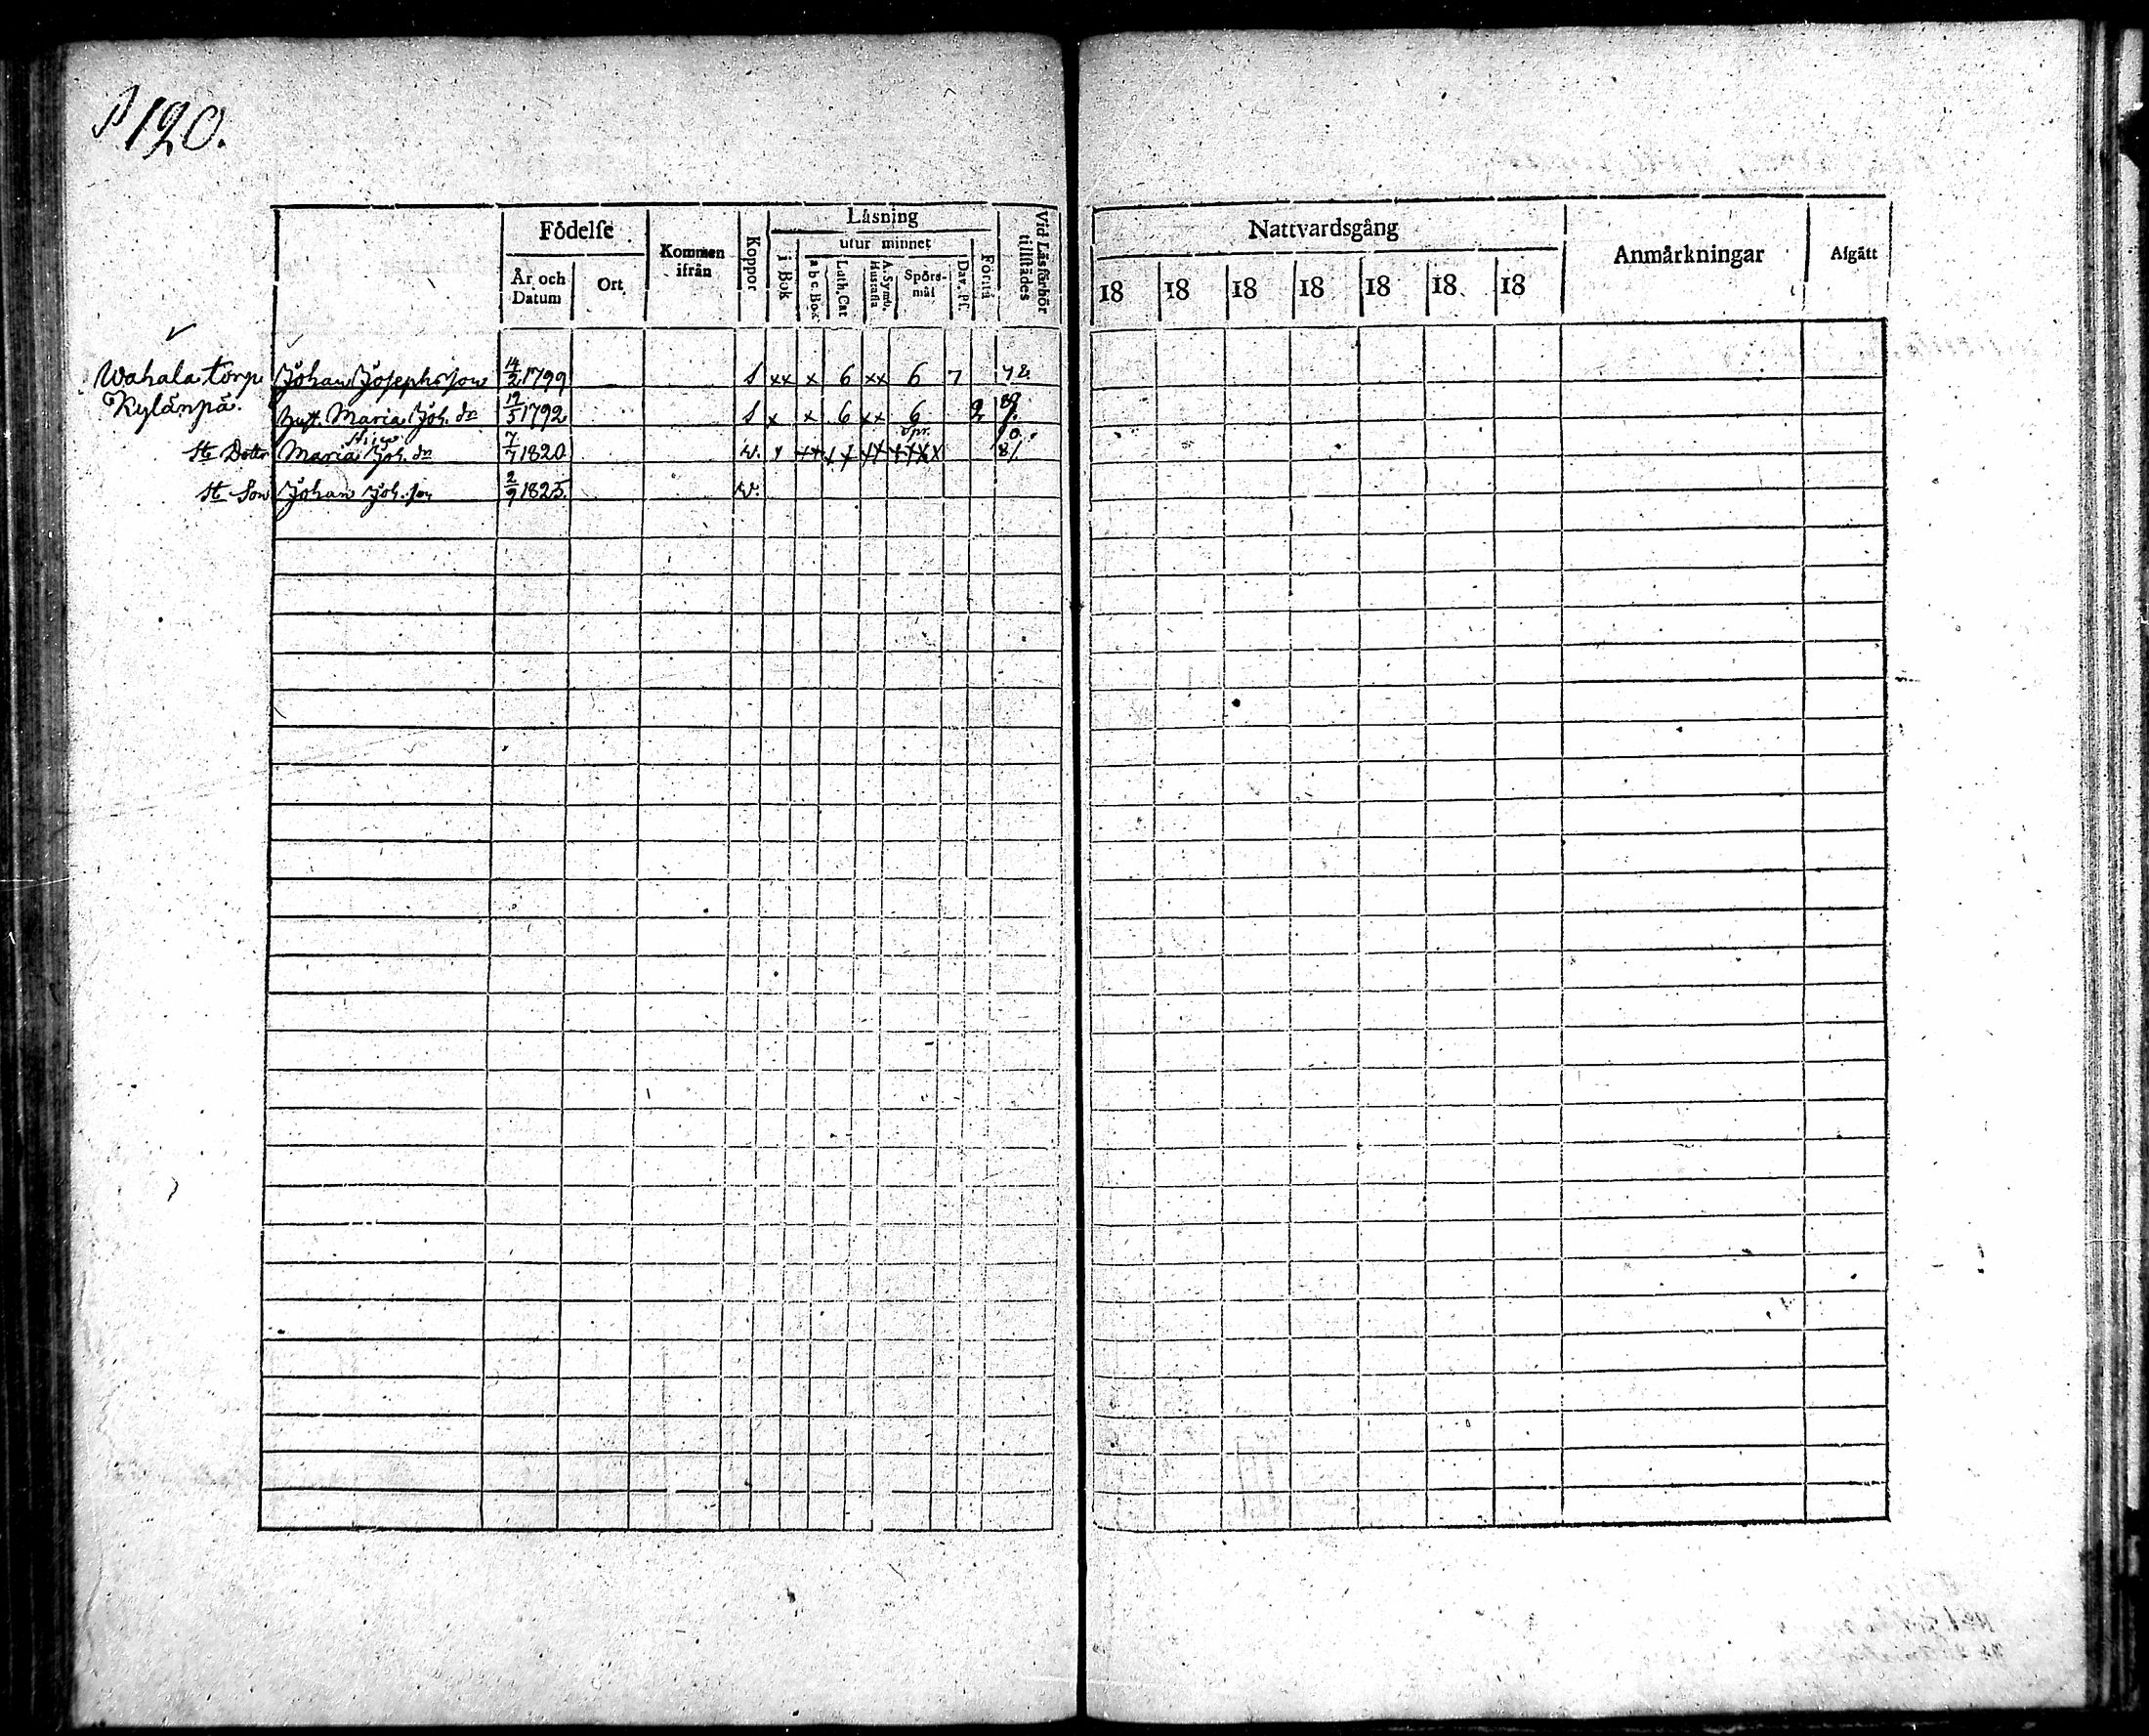 120.
Födelse Kommen ifrån Koppor Läsning Vid Läsförhör tillstädes Nattvardsgång Anmärkningar Afgått
År och Datum Ort i Bok utur minnet Förstå 18 18 18 18 18 18 18
a b c. Bok Luth. Cat A. Symb. Hustafla Spörsmål Dav. Ps.
Wahala torp Johan Josephsson 14/2 1799 S xx x 6 xx 6 7
Kylänpä. Hust. Maria Joh. dr 19/5 1792 S x x 6 xx 6 2
St. Dotter Maria Joh. dr 7/7 1820 W.
St. Son Johan Joh. son 2/9 1825 W.